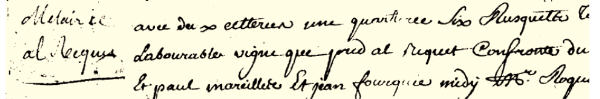 Metairie
al Requis
avec dux cetterées une quarterée Six Rusquette
Labourable vigne que pred al riquet Confronte du
Et paul mareillete Et jean fourquie midy Mr. Roqu